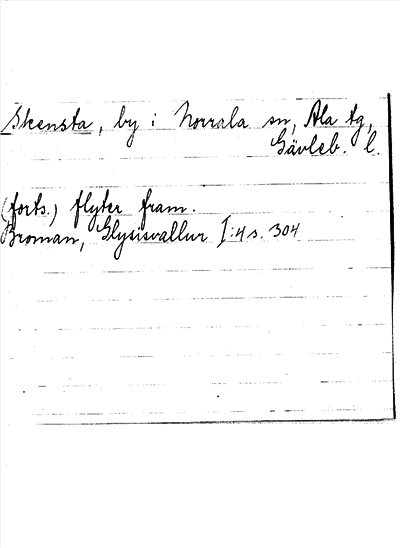 Skensta, by i Norrala sn, Ala tg,
Gävleb. l.
(forts.) flyter fram.
Broman, Glysisvallur I:4 s. 304